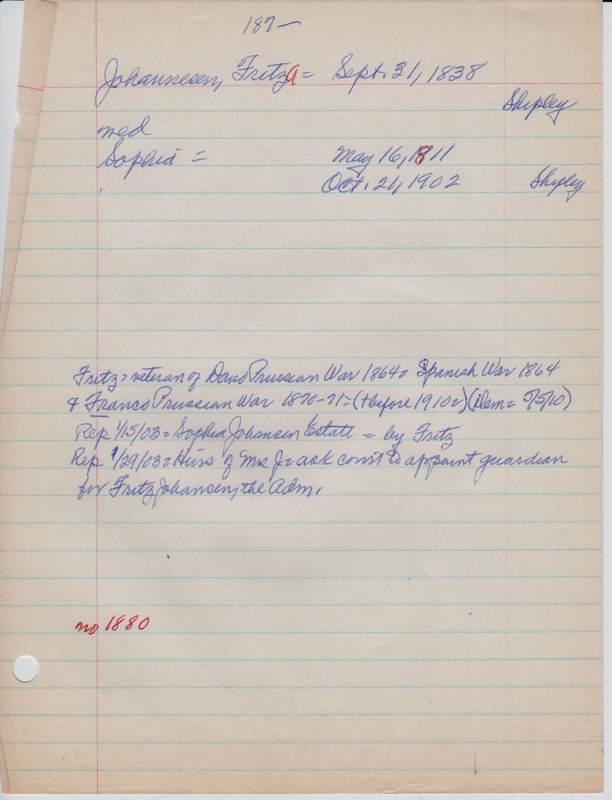 187—
Johannesen, Fritz a = Sept. 31, 1838
Shipley
med
Sophia = May 16, 1811
Oct. 21, 1902 Shipley
Fritz = veteran of Dano Prussian War 1864 = Spanish War 1864
& Franco Prussian War 1870-71 = (+ before 1910 =) (item = 5/5/10)
Rep 1/15/03 = Sophia Johansen Estate = by Fritz
Rep 1/29/03 = Heirs of Mrs J = ask court to appoint guardian
for Fritz Johansen, the Adm.
no 1880